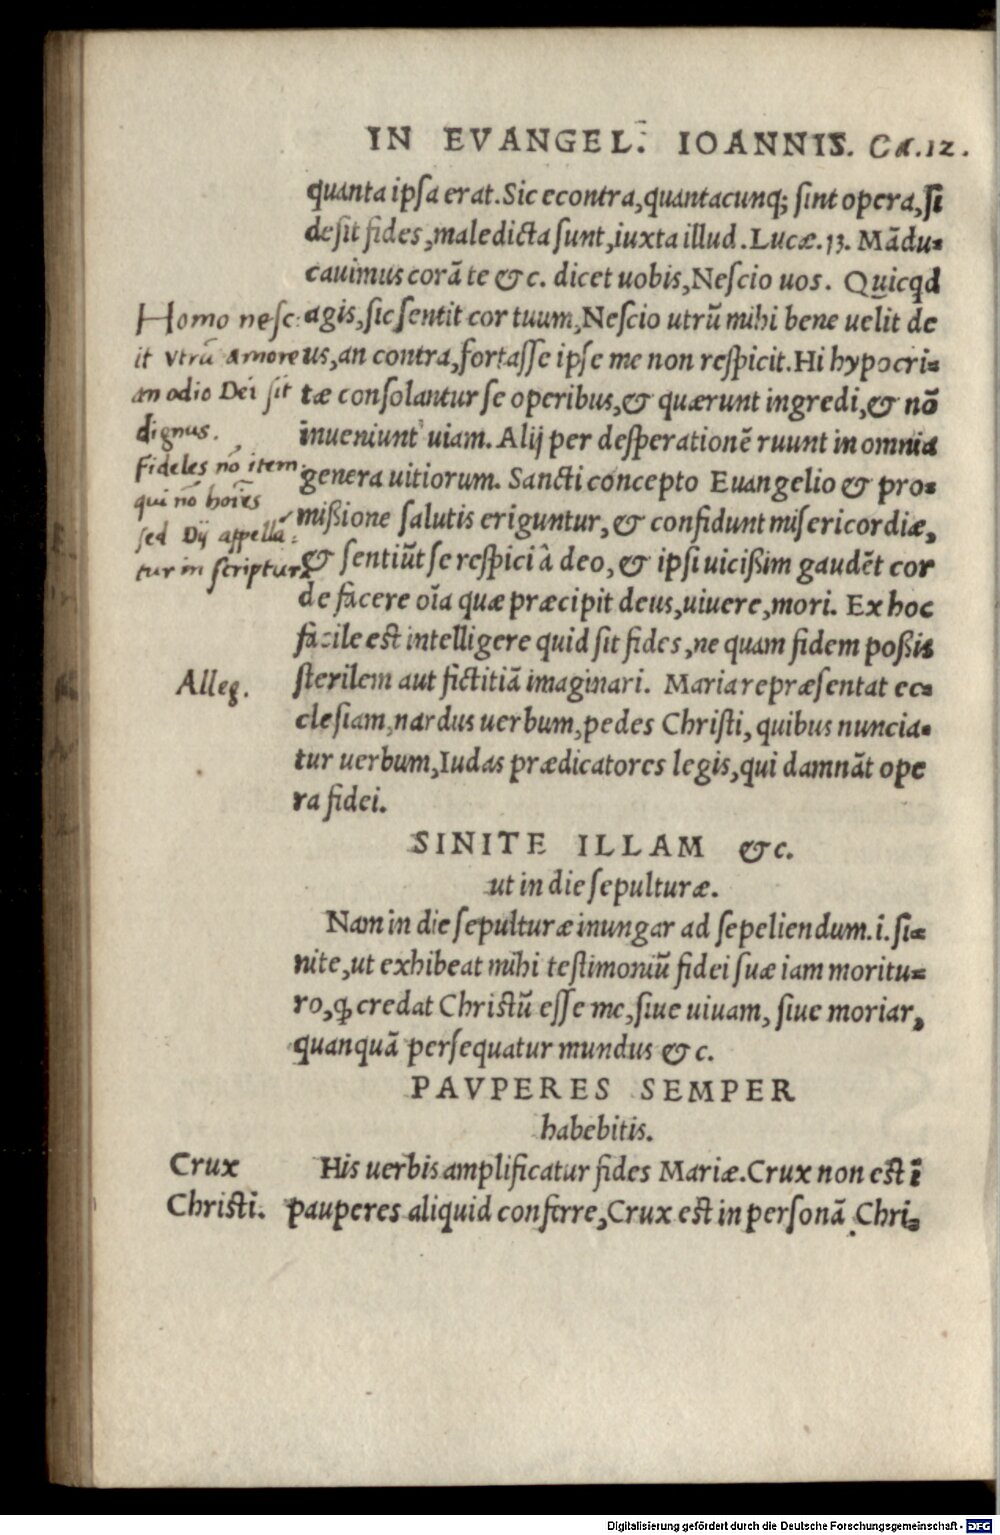 IN EVANGEL. IOANNIS. Ca.12.
quanta ipſa erat. Sic econtra, quantacunq; ſint opera, ſi
deſit fides, maledicta ſunt, iuxta illud. Lucæ. 13. Mãdu=
cauimus corã te & c. dicet uobis, Neſcio uos. Quicqd
agis, ſic ſentit cor tuum, Neſcio utrũ mihi bene uelit de
us, an contra, fortaſſe ipſe me non reſpicit. Hi hypocri=
tæ conſolantur ſe operibus, & quærunt ingredi, & nõ
inueniunt uiam. Alij per deſperationẽ ruunt in omnia
genera uitiorum. Sancti concepto Euangelio & pro=
mißione ſalutis eriguntur, & confidunt miſericordiæ,
& ſentiũt ſe reſpici à deo, & ipſi uicißim gaudẽt cor
de facere oĩa quæ præcipit deus, uiuere, mori. Ex hoc
facile eſt intelligere quid ſit fides, ne quam fidem poßis
ſterilem aut fictitiã imaginari. Maria repræſentat ec=
cleſiam, nardus uerbum, pedes Chriſti, quibus nuncia=
tur uerbum, Iudas prædicatores legis, qui damnãt ope
ra fidei.
Homo neſc
it vtrũ amore
an odio Dei ſit
dignus.
Fideles nõ item
qui nõ hoĩes
ſed Dij appellã=
tur in ſcriptura
Alleg.
SINITE ILLAM &c.
ut in die ſepulturæ.
Nam in die ſepulturæ inungar ad ſepeliendum. i. ſi=
nite, ut exhibeat mihi teſtimoniũ fidei ſuæ iam moritu=
ro, ꝙ credat Chriſtũ eſſe me, ſiue uiuam, ſiue moriar,
quanquã perſequatur mundus & c.
PAVPERES SEMPER
habebitis.
Crux
Chriſti.
His uerbis amplificatur fides Mariæ. Crux non eſt ĩ
pauperes aliquid conferre, Crux eſt in perſonã Chri=
Digitalisierung gefördert durch die Deutsche Forschungsgemeinschaft - DFG